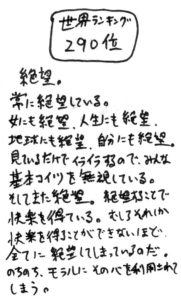 世界ランキング
290位
絶望。
常に絶望している。
女にも絶望、人生にも絶望、
地球にも絶望、自分にも絶望。
見ているだけでイライラするので、みんな
基本コイツを無視している。
そしてまた絶望。絶望することで
快楽を得ている。むしろそれしか
快楽を得ることができないほど、
全てに絶望してしまっているのだ。
のちのち、モラルにその心を利用されて
しまう。